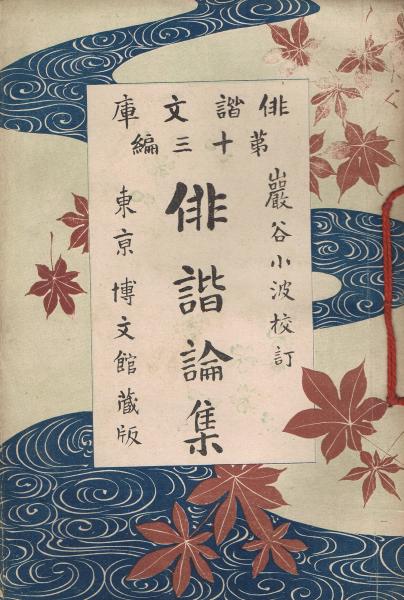 俳諧文庫
第十三編
巖谷小波校訂
俳諧論集
東京博文館蔵版